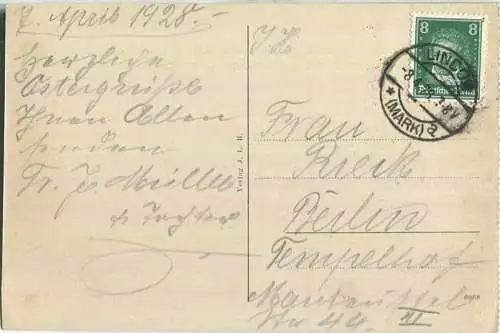 7. April 1928.-
Herzliche
Ostergrüße
Ihnen Allen
senden
Fr. J. Müller
u Tochter
Verlag J. L. B.
8
8
Deutsches Reich
LINDOW
(MARK)
Frau
Rieck
Berlin
Tempelhof
Manteuffel
Str 44 II